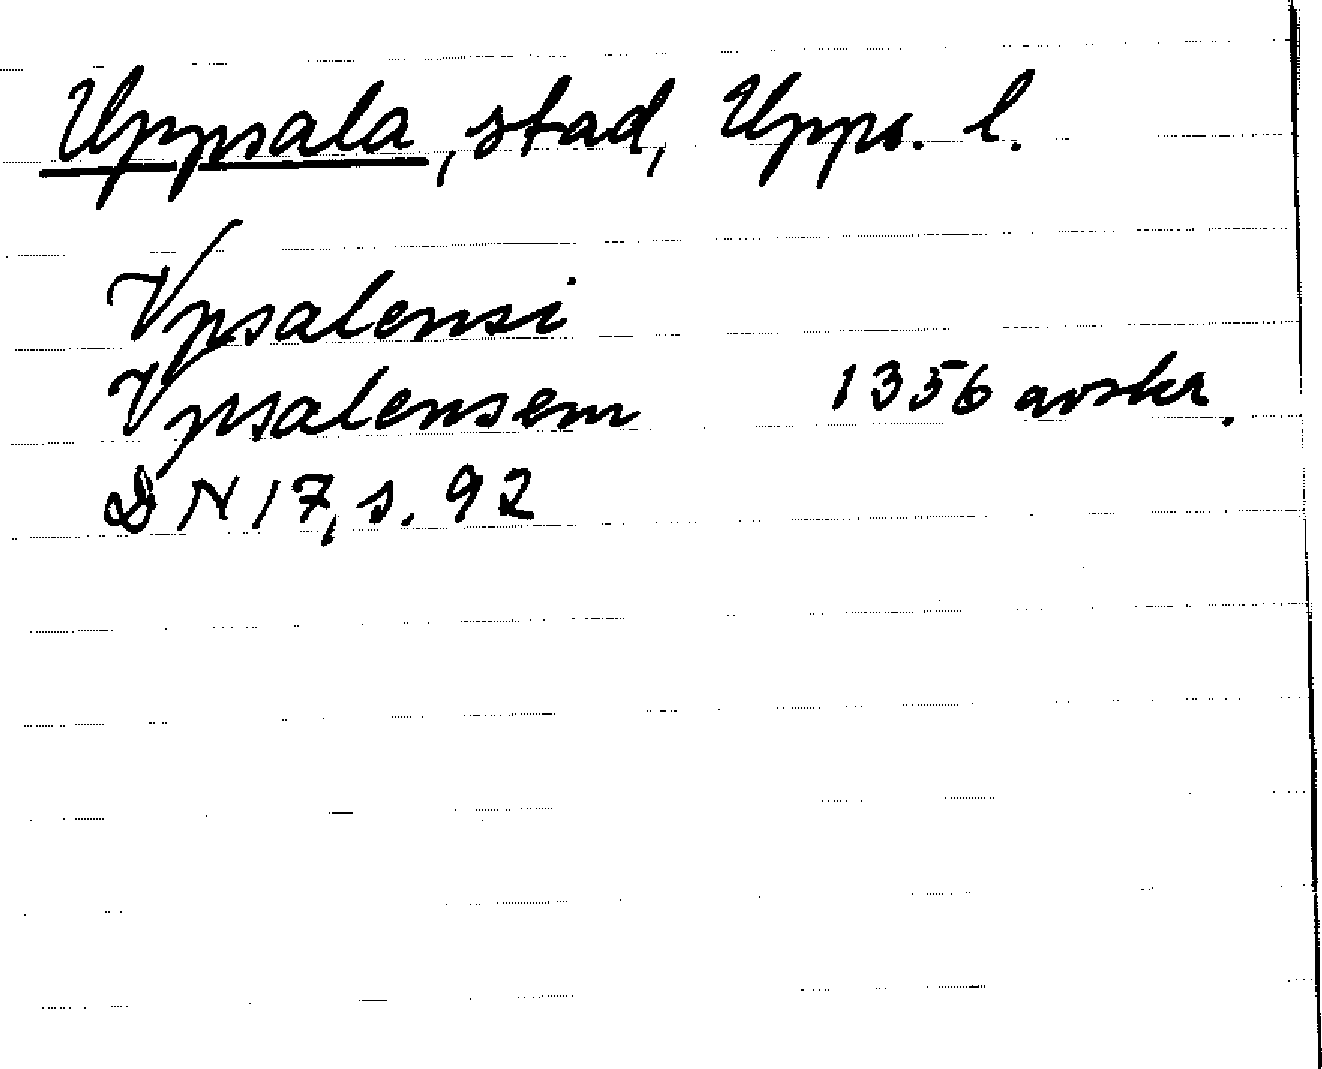 Uppsala, stad, Upps. l.
Vpsalensi
Vpsalensem 1356 avskr.
DN 17, s. 92